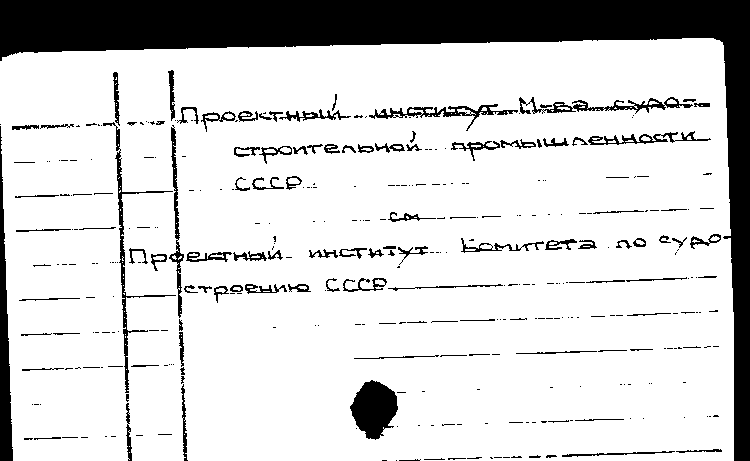 Проектный институт М-ва судо-
строительной промышленности
СССР.
см
Проектный институт Комитета по судо-
строению СССР.